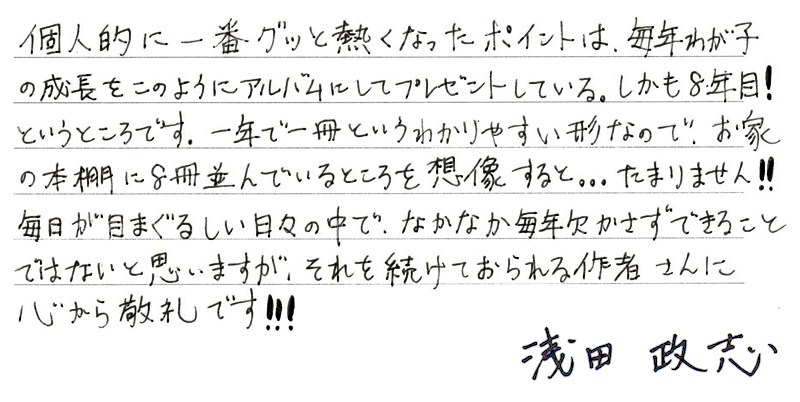 個人的に一番グッと熱くなったポイントは、毎年わが子
の成長をこのようにアルバムにしてプレゼントしている。しかも8年目!
というところです。一年で一冊というわかりやすい形なので、お家
の本棚に8冊並んでいるところを想像すると...たまりません!!
毎日が目まぐるしい日々の中で、なかなか毎年欠かさずできること
ではないと思いますが、それを続けておられる作者さんに
心から敬礼です!!!
浅田 政志